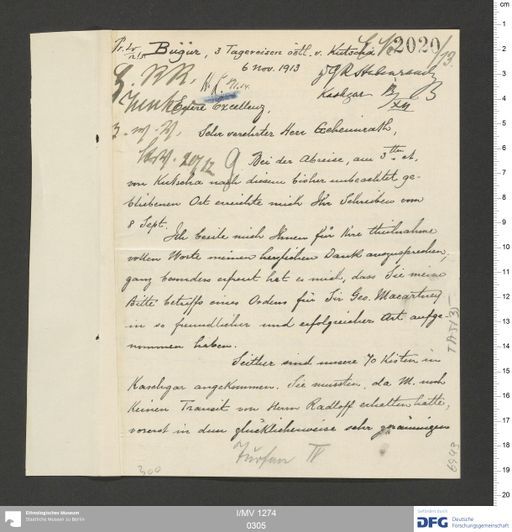 Bügür, 3 Tagereisen östl. v. Kutscha
2020/13.
6 Nov. 1913
Kashgar
Euere Excellenz,
Sehr verehrter Herr Geheimrath,
Bei der Abreise, am 3ten ct.
von Kutscha nach diesem bisher unbeachtet ge-
bliebenen Ort erreichte mich Ihr Schreiben vom
8 Sept.
Ich beeile mich Ihnen für Ihre theilnahme
vollen Worte meinen herzlichen Dank auszusprechen,
ganz besonders erfreut hat es mich, dass Sie meine
Bitte betreffs eines Ordens für Sir Geo. Macartney
in so freundlicher und erfolgreicher Art aufge-
nommen haben.
Seither sind unsere 70 Kisten in
Kaschgar angekommen. Sie mussten, da M. noch
keinen Transit von Herrn Radloff erhalten hatte,
vorerst in dem glücklicherweise sehr geräumigen
Turfan IV
300
6993
Ethnologisches Museum
Staatliche Museen zu Berlin
I/MV 1274
0305
gefördert durch
DFG Deutsche
Forschungsgemeinschaft
cm
1
2
3
4
5
6
7
8
9
10
11
12
13
14
15
16
17
18
19
20